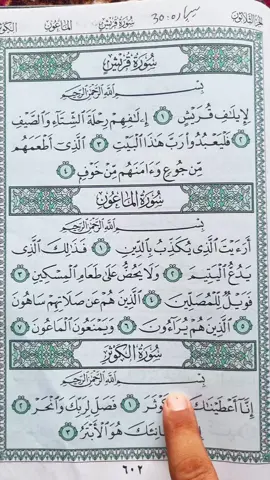 الجزء الثلاثون سورة قريش الماعون الكوثر
سپاره:30
سُورَةُ قُرَيْشٍ
بِسْمِ اللَّهِ الرَّحْمَٰنِ الرَّحِيمِ
لِإِيلَافِ قُرَيْشٍ ١ إِۦلَافِهِمْ رِحْلَةَ الشِّتَاءِ وَالصَّيْفِ
٢ فَلْيَعْبُدُوا رَبَّ هَٰذَا الْبَيْتِ ٣ الَّذِي أَطْعَمَهُم
مِّن جُوعٍ وَءَامَنَهُم مِّنْ خَوْفٍ ٤
سُورَةُ الْمَاعُونِ
بِسْمِ اللَّهِ الرَّحْمَٰنِ الرَّحِيمِ
أَرَءَيْتَ الَّذِي يُكَذِّبُ بِالدِّينِ ١ فَذَٰلِكَ الَّذِي
يَدُعُّ الْيَتِيمَ ٢ وَلَا يَحُضُّ عَلَىٰ طَعَامِ الْمِسْكِينِ ٣
فَوَيْلٌ لِّلْمُصَلِّينَ ٤ الَّذِينَ هُمْ عَن صَلَاتِهِمْ سَاهُونَ
٥ الَّذِينَ هُمْ يُرَاءُونَ ٦ وَيَمْنَعُونَ الْمَاعُونَ ٧
سُورَةُ الْكَوْثَرِ
بِسْمِ اللَّهِ الرَّحْمَٰنِ الرَّحِيمِ
إِنَّا أَعْطَيْنَاكَ ١ فَصَلِّ لِرَبِّكَ وَانْحَرْ ٢
هُوَ الْأَبْتَرُ ٣
٦٠٢